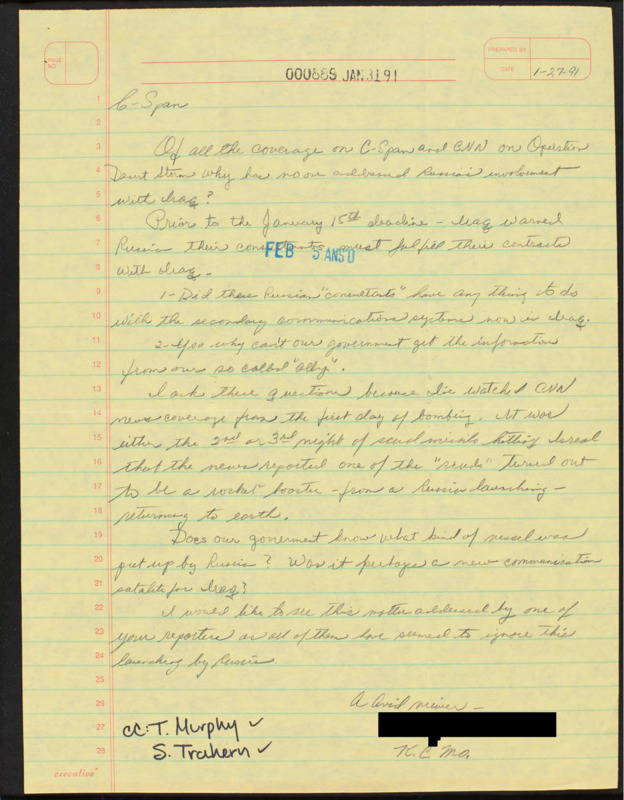 PAGE NO.
PREPARED BY
DATE 1-27-91
000889 JAN.31 91
1 C-Span
2
3 Of all the coverage on C-Span and CNN on Operation
4 Desert Storm why has no one addressed Russia's involvement
5 with Iraq?
6 Prior to the January 15th deadline - Iraq warned
7 Russia their consultants must fulfill their contracts
FEB 5 ANS'D
8 with Iraq.
9 1- Did these Russian "consultants" have any thing to do
10 with the secondary communications systems now in Iraq.
11 2- If so why can't our government get the information
12 from our so called "ally".
13 I ask these questions because I've watched CNN
14 news coverage from the first day of bombing. It was
15 either the 2nd or 3rd night of scud missals hitting Isreal
16 that the news reported one of the "scuds" turned out
17 to be a rocket booster - from a Russia launching -
18 returning to earth.
19 Does our goverment know what kind of vessel was
20 put up by Russia? Was it perhaps a new communication
21 satalite for Iraq?
22 I would like to see this matter addressed by one of
23 your reporters as all of them have seemed to ignore this
24 launching by Russia.
25
26 A Avid viewer -
27 cc: T. Murphy ✓
28 S. Trahern ✓
K.C. Mo.
executive